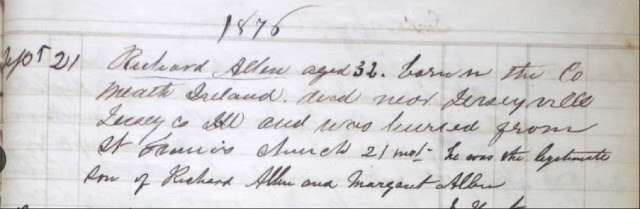 1876
Sept 21 Richard Allen aged 32. born in the Co
Meath Ireland. died near Jerseyville
Jersey co Ill and was buried from
St Francis church 21 inst he was the legitimate
son of Richard Allen and Margaret Allen